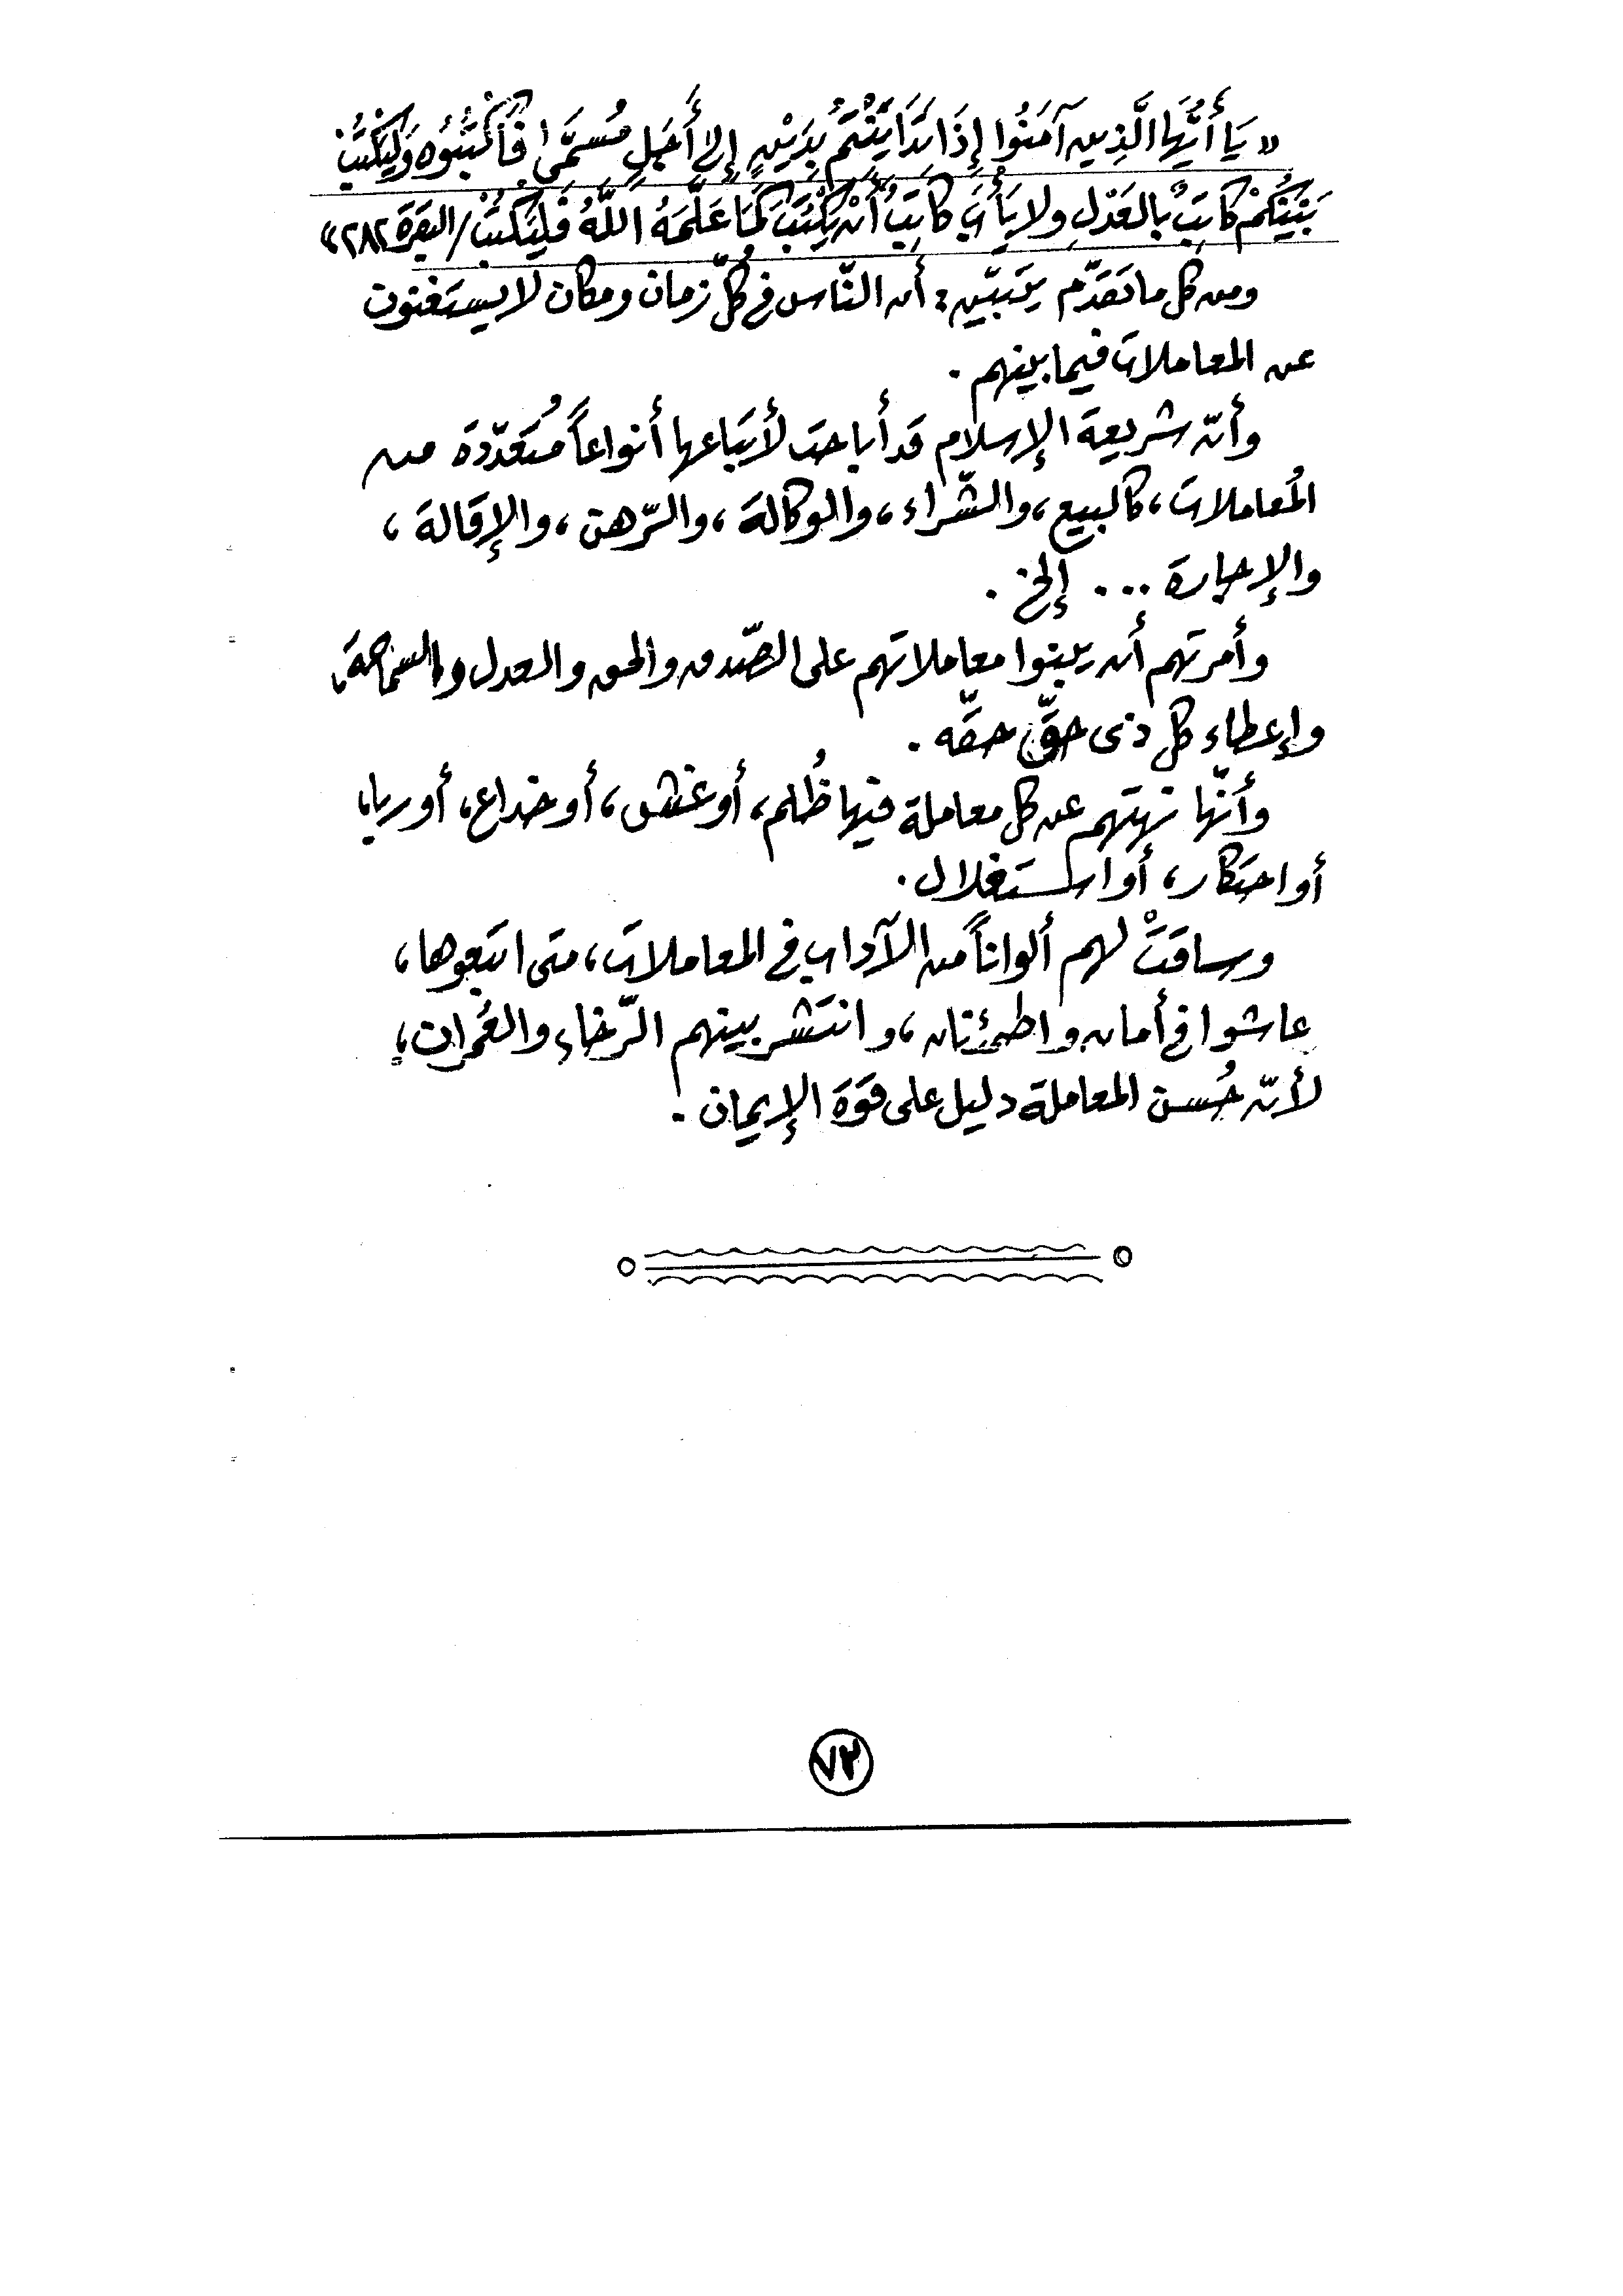 «يَا أَيُّهَا الَّذِينَ آمَنُوا إِذَا تَدَايَنْتُمْ بِدَيْنٍ إِلَى أَجَلٍ مُسَمَّى فَاكْتُبُوُه وَلْيَكْتُبْ
بَيْنَكُمْ كَاتِبٌ بِالعَدْلِ ولا يَأْبَ كَاتِبٌ أَنْ يَكْتُبَ كَمَا عَلَّمَهُ اللَّهُ فَلْيَكْتُبْ / البقرة ٢٨٢»
ومن كل ما تَقدّم يتبيّن : أن النّاس فى كُلّ زمان ومكان لا يستغنون
عن المعاملات فيما بينهم .
وأنّ شريعة الإسلام قد أباحت لأتباعها أنواعاً مُتعدّدة من
المُعاملات ، كالبيع ، والشّراء ، والوكالة ، والرّهن ، والإقالة ،
والإجارة ... إلخ .
وأمرتهم أن يبنوا معاملاتهم على الصّدق والحق والعدل والسماحة ،
وإعطاء كل ذى حقّ حقّه .
وأنّها نهتهم عن كل معاملة فيها ظُلم ، أو غش ، أو خداع ، أو ربا ،
أو احتكار ، أو استغلال .
وساقتْ لهم ألواناً من الآداب فى المعاملات ، متى اتبعوها ،
عاشوا فى أمان واطمئنان ، وانتشر بينهم الرّخاء والعُمران ،
لأنّ حُسن المعاملة دليل على قوة الإيمان .
٧٢